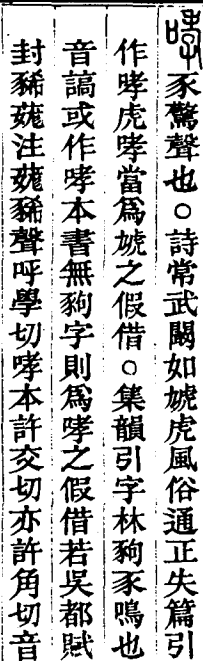 哮豕驚聲也○詩常武闞如虓虎風俗通正失篇引
作哮虎哮當爲虓之假借○集韻引字林豞豕鳴也
音謞或作哮本書無豞字則爲哮之假借若吳都賦
封豨𧲱注𧲱豨聲呼學切哮本許交切亦許角切音